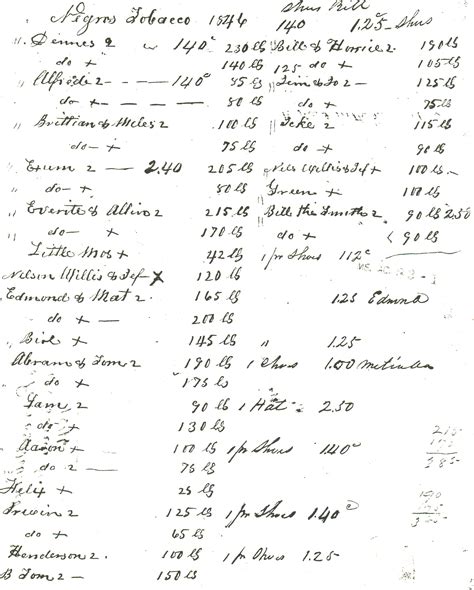 Shoes Bill
Negros Tobacco 1846 140 1.25 Shoes
" Dennes 2 140c 230 lb Bill & Horrice 2 190 lb
do + 140 lb 125 do + 105 lb
" Alfrede 2 - - - 140c 85 lb " Jim & Jo 2 - 125 lb
do + - - - 80 lb do + 75 lb
" Brittian & Miles 2 100 lb " Zeke 2 115 lb
" do - + 75 lb do + 90 lb
" Exum 2 - 2.40 205 lb Nels Willis & Jef + 100 lb
do - + 80 lb Green + 100 lb
" Everite & Allin 2 215 lb Bill the Smith 2 90 lb 2.50
" do - + 170 lb do + 90 lb
Little Mos + 42 lb 1 pr Shoes 112c
Nelson Willis & Jef - + 120 lb
Edmond & Mat 2 165 lb 1.25 Edmnd
do + - 200 lb
" Bird + 145 lb " 1.25
Abram & Tom 2 190 lb 1 Shoes 1.00
do + 175 lb
Sam 2 90 lb 1 Hat - 2.50
do + 130 lb
Aaron + 100 lb 1 pr Shoes 140c
do 2 - 75 lb
Felix + 25 lb
Irewin 2 125 lb 1 pr Shoes 1.40c
do + 65 lb
Henderson 2 100 lb 1 pr Shoes 1.25
B Tom 2 - 150 lb